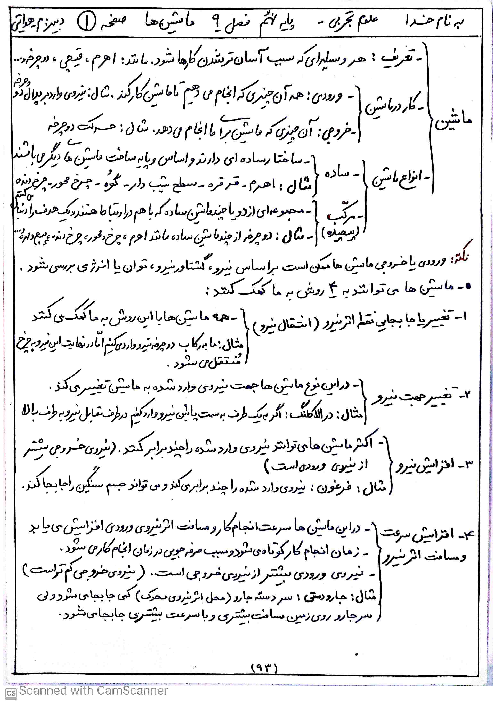 به نام خدا علوم تجربی - پایه نهم فصل ۹ ماشین ها صفحه ۱ دبیر:
ماشین
- تعریف: هر وسیله ای که سبب آسان تر شدن کارها شود. مانند: اهرم، قیچی، دوچرخه...
- کار در ماشین
- ورودی: همه آن چیزی که انجام می دهیم تا ماشین کار کند. مثال: نیروی وارد بر پدال دوچرخه
- خروجی: آن چیزی که ماشین برای ما انجام می دهد. مثال: حرکت دوچرخه
- انواع ماشین
ساده
- ساختار ساده ای دارند و اساس و پایه ساخت ماشین های دیگر می باشند
مثال: اهرم - قرقره - سطح شیب دار - گُوِه - چرخ محور - چرخ دنده
مرکّب (پیچیده)
- مجموعه ای از دو یا چند ماشین ساده که با هم در ارتباط هستند و یک هدف را دنبال می کنند
- مثال: دوچرخه از چند ماشین ساده، مانند اهرم، چرخ محور، چرخ دنده، پیچ و
نکته: ورودی یا خروجی ماشین ها ممکن است بر اساس نیرو، گشتاور نیرو، توان یا انرژی بررسی شود.
- ماشین ها می توانند به ۴ روش به ما کمک کنند:
۱- تغییر یا جابجایی نقطه اثر نیرو (انتقال نیرو)
- همه ماشین ها با این روش به ما کمک می کنند
مثال: ما به رکاب دوچرخه نیرو وارد می کنیم امّا در نهایت این نیرو به چرخ
منتقل می شود.
۲- تغییر جهت نیرو
- در این نوع ماشین ها جهت نیروی وارد شده به ماشین تغییر می کند.
مثال: در الاکلنگ: اگر به یک طرف به سمت پائین نیرو وارد کنیم در طرف مقابل نیرو به طرف بالا
۳- افزایش نیرو
- اکثر ماشین ها می توانند نیروی وارد شده را چند برابر کنند. (نیروی خروجی بیشتر
از نیروی ورودی است)
مثال: فرغون: نیروی وارد شده را چند برابر می کند و می تواند جسم سنگین را جابجا کند.
۴- افزایش سرعت و مسافت اثر نیرو
- در این ماشین ها سرعت انجام کار و مسافت اثر نیروی ورودی افزایش می یابد
- زمان انجام کار کوتاه می شود و سبب صرفه جویی در زمان انجام کار می شود.
- نیروی ورودی بیشتر از نیروی خروجی است. (نیروی خروجی کم تر است)
مثال: جارو دستی: سر دسته جارو (محل اثر نیروی محرک) کمی جابجا می شود ولی
سر جارو روی زمین مسافت بیشتری و با سرعت بیشتری جابجا می شود.
(۹۳)
CS Scanned with CamScanner